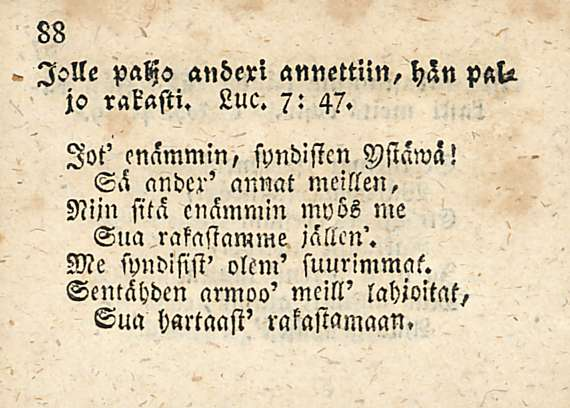 88
Jolle paljo anderi annettiin, hän pal-
jo rakasti. Luc. 7: 47.
Jot' enämmin, syndisten Ystäwä!
Säander' annat meillen,
Nijn sitä enämmin myös me
Sua rakastamme jällen'.
Me syndisist' olem' suurimmat.
Sentähden armoo' meill' lahjoitat,
Sua hartaast' rakastamaan.